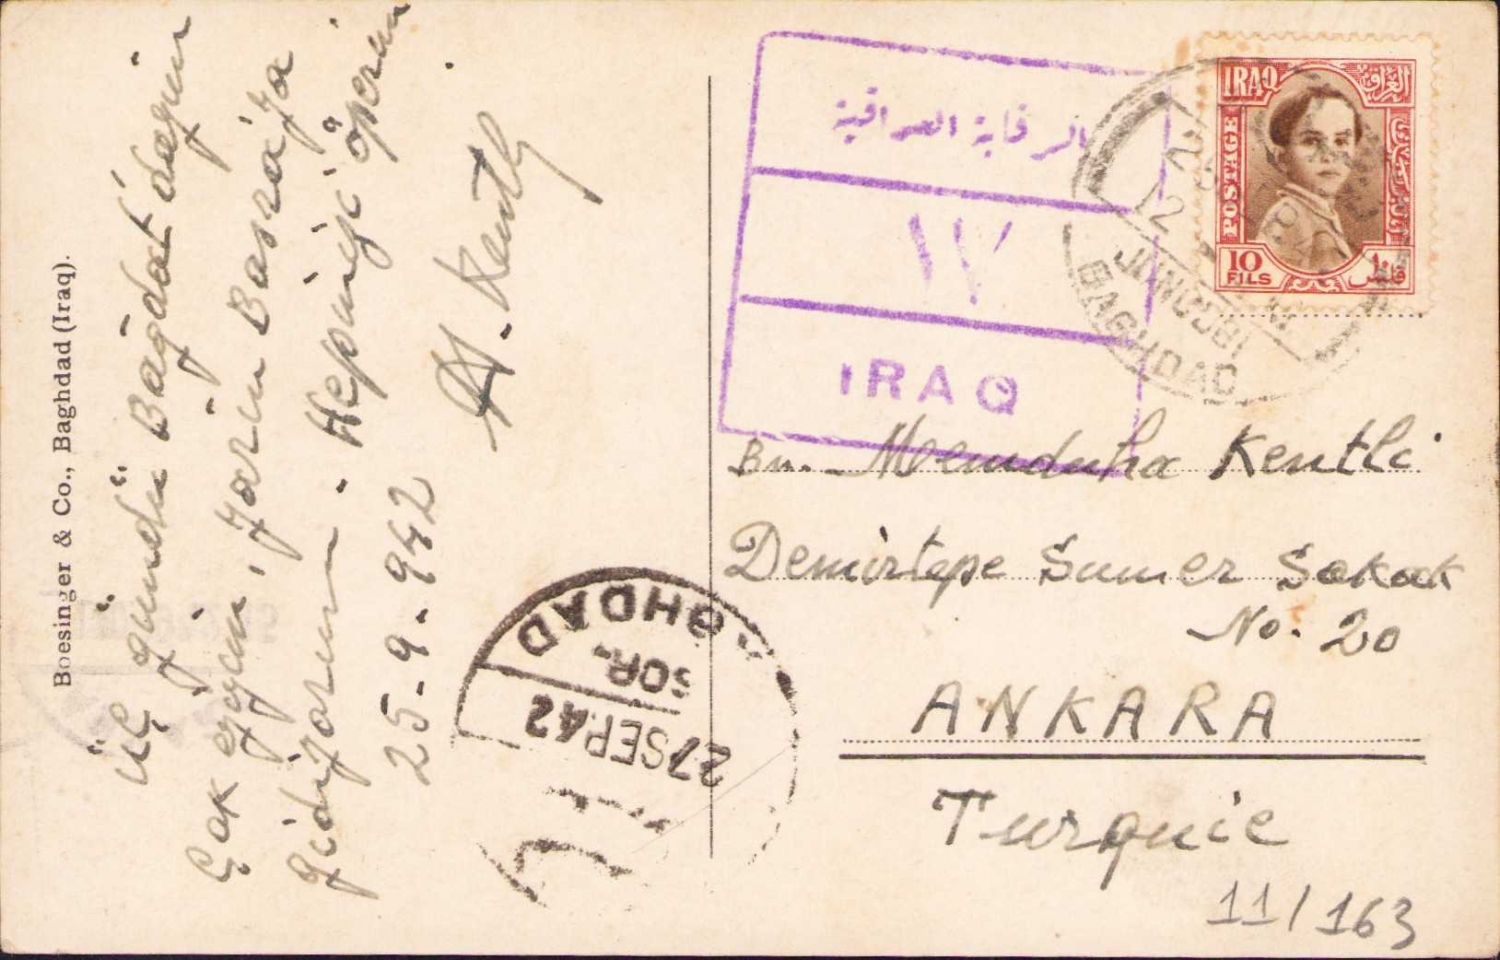 Boesinger & Co., Baghdad (Iraq).
Üç gündür Bağdat'dayım
Çok eyim, yarın Basra'ya
gidiyorum. Hepinizi öperim
25-9-942
H. Kentli
الرقابة العراقية
١٧
IRAQ
IRAQ
العراق
POSTAGE
10
FILS
فلس
JANOOBI
BAGHDAD
BAGHDAD
SOR.
27 SEP. 42
Bn. Memduha Kentli
Demirtepe Sumer Sokak
No. 20
ANKARA
Turquie
11/163